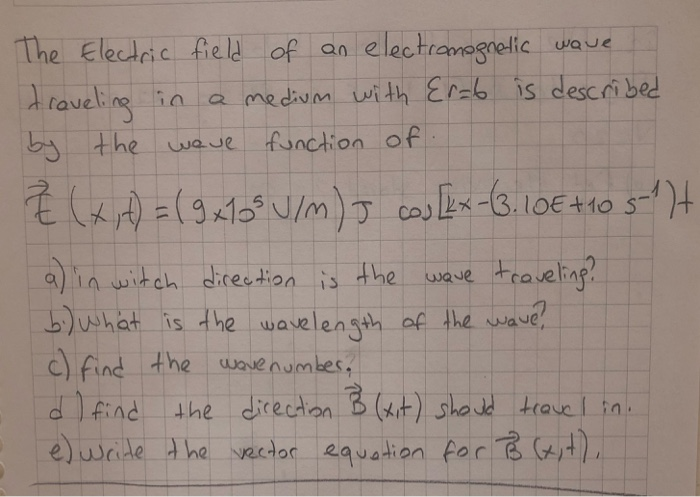 The Electric field of an electromagnetic wave
traveling in a medium with Er=6 is described
by the wave function of.
E⃗ (x,t) = (9x10⁵ V/m) J cos[kx-(3.10E+10 s⁻¹)t
a) in witch direction is the wave traveling?
b.) What is the wavelength of the wave?
c) find the wavenumber.
d) find the direction B⃗ (x,t) should travel in.
e) write the vector equation for B⃗ (x,t).